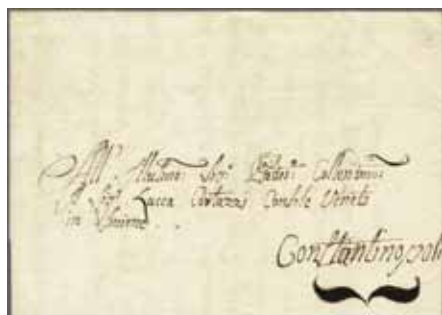 All' Illustmo Sigr Padron Collendmo
Il Sigr Lucca Cortazzi Console Veneto
in Smirne
Constantinopoli